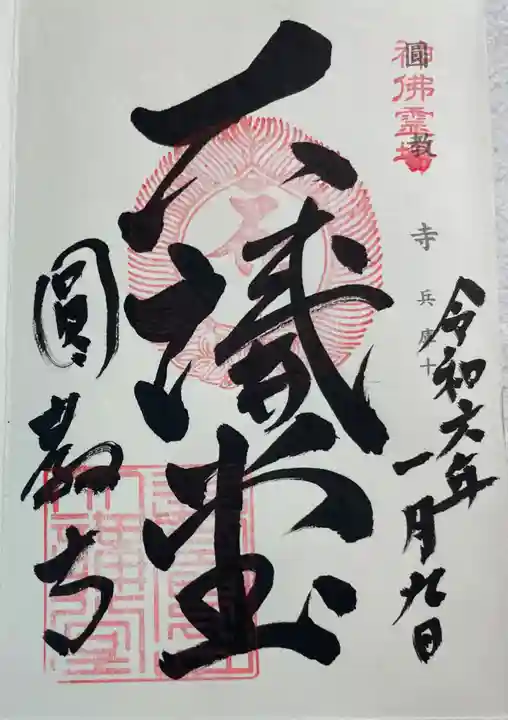 神佛霊場
圓教寺 兵庫十
令和六年
一月九日
大講堂
圓教寺